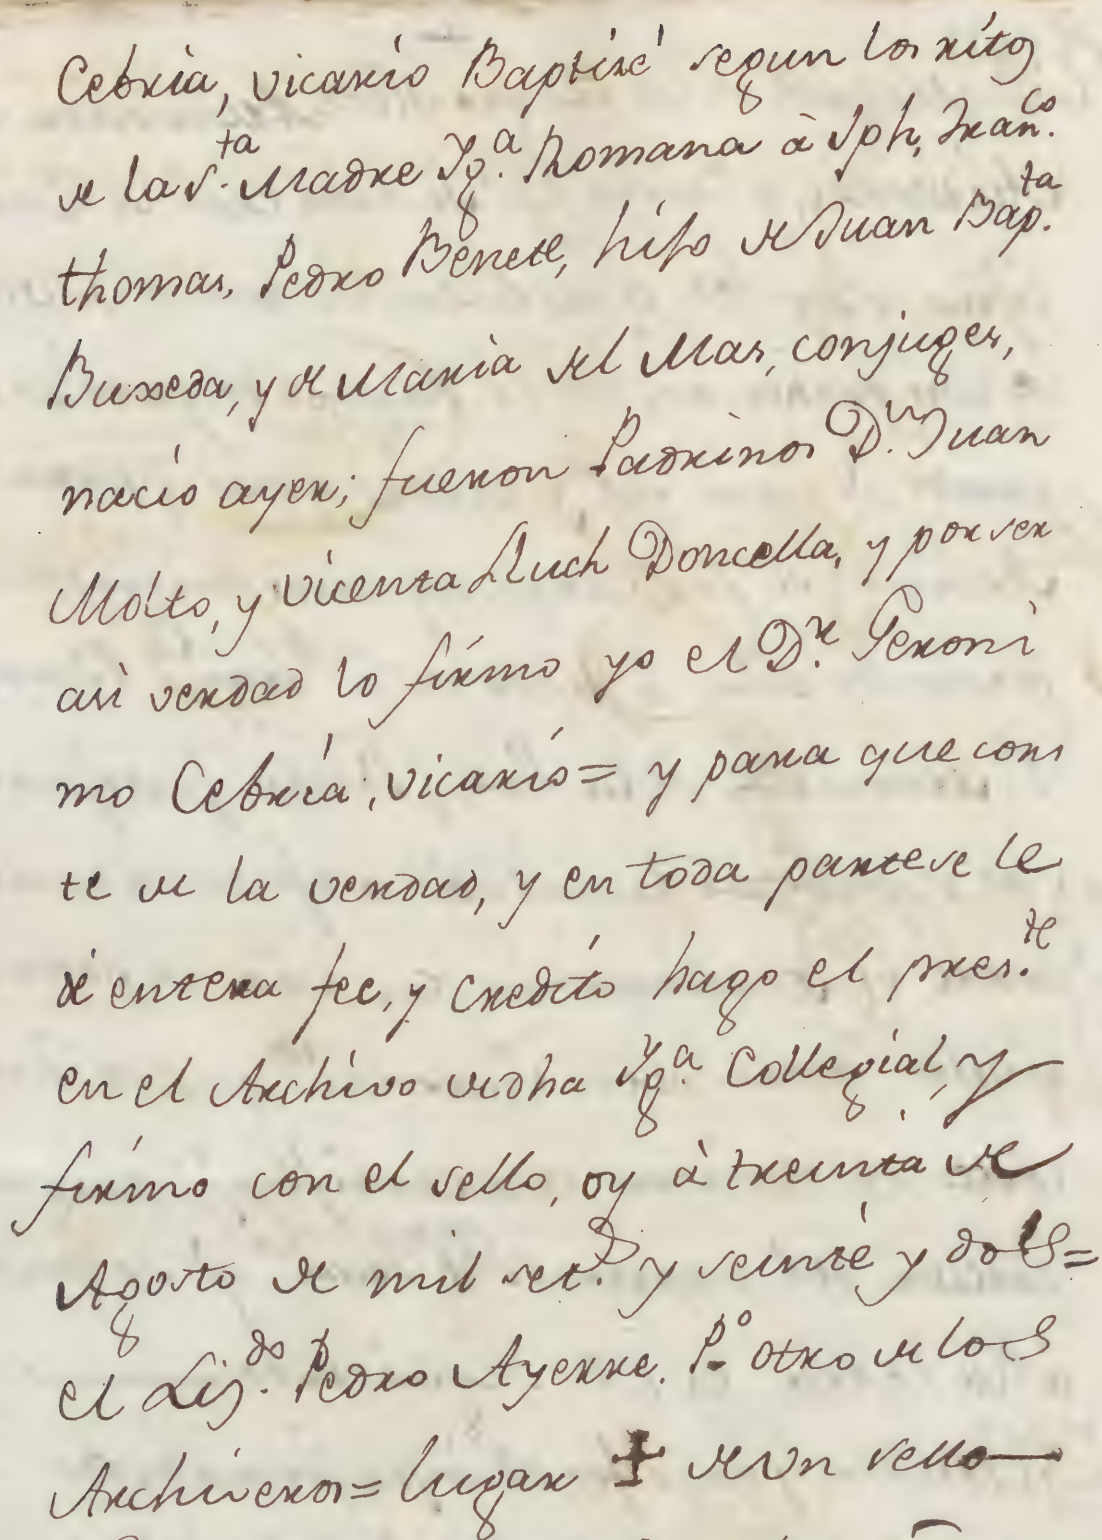 Cebria, vicario Baptizé segun los ritos
de la S.ta Madre Yg.a Romana à Jph, Fran.co
thomas, Pedro Benete, hijo de Juan Bap.ta
Buxeda, y de Maria del Mar, conjuges,
nacio ayer; fueron Padrinos D.n Juan
Molto, y Vicenta Lluch Doncella, y por ser
asi verdad lo firmo yo el D.r Geroni
mo Cebria, vicario = y para que cons
te de la verdad, y en toda parte se le
dé entera fee, y credito hago el pres.te
en el Archivo de dha Yg.a Collegial, y
firmo con el sello, oy à treinta de
Agosto de mil set.s y y dos =
el Liz.do Pedro Ayerre. P.o otro de los
Archiveros = lugar ✝ de Un sello